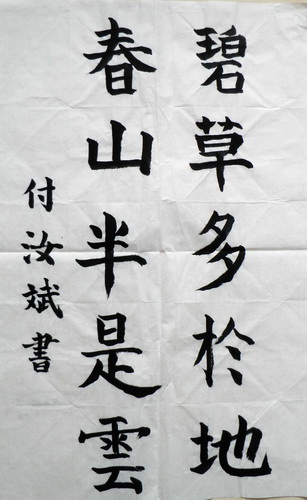 碧草多於地
春山半是雲
付汝斌書